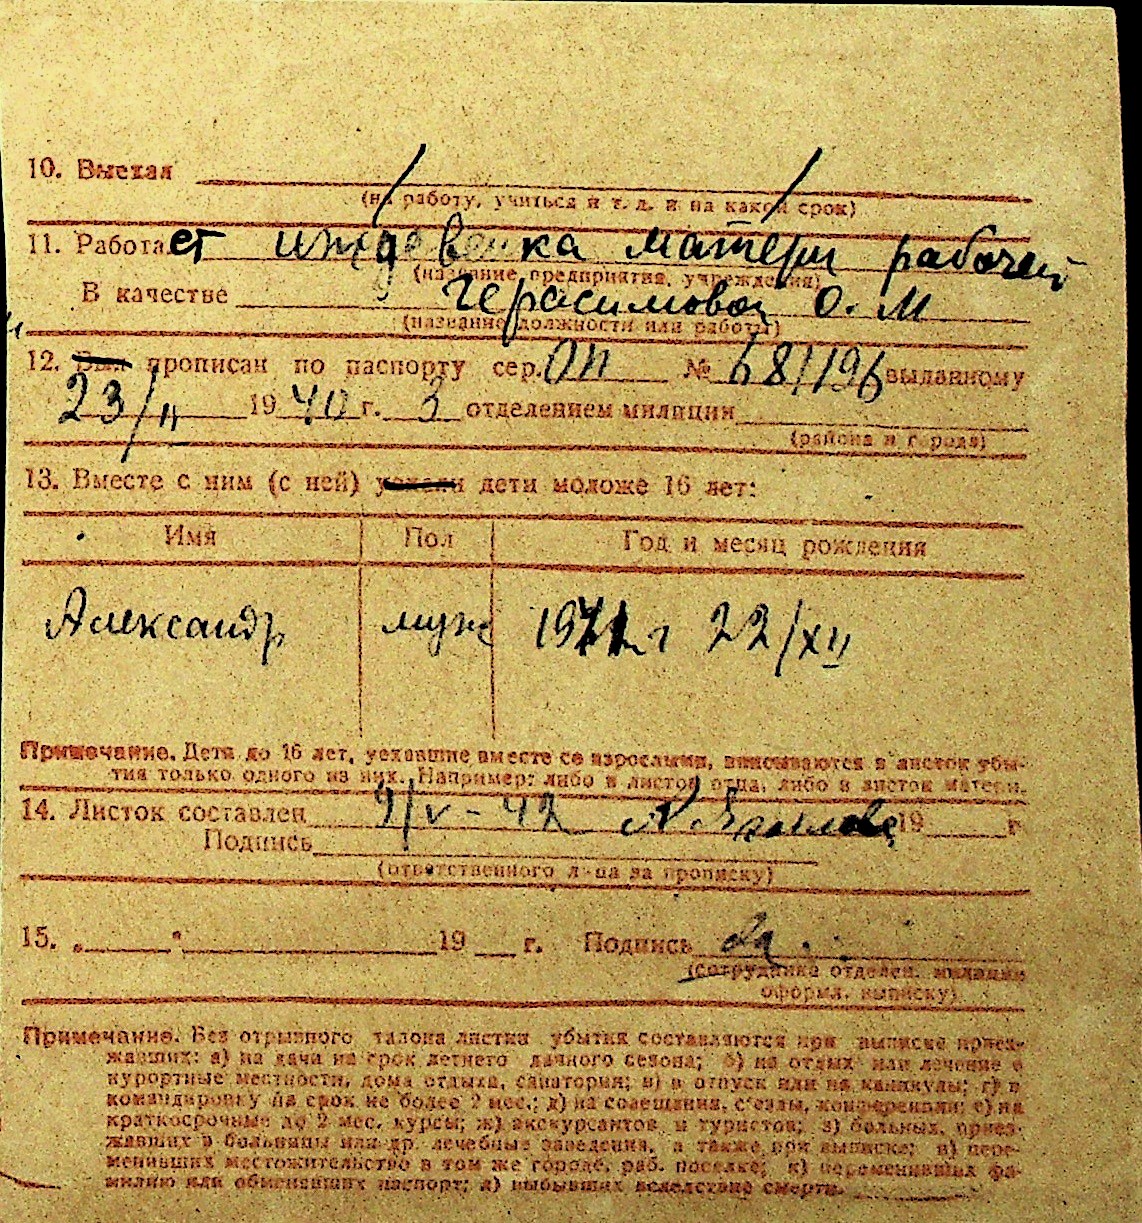 10. Выехал
(на работу, учиться и т. д. и на какой срок)
11. Работает иждевенка матери рабочей
(название предприятия, учреждения)
В качестве Герасимовой О. М
(название должности или работы)
12. Был прописан по паспорту сер. ОП № 681196 выданному
23/II 1940 г. 3 отделением милиции
(района и города)
13. Вместе с ним (с ней) уехали дети моложе 16 лет:
Имя Пол Год и месяц рождения
Александр муж 1941 г 22/XII
Примечание. Дети до 16 лет, уехавшие вместе со взрослыми, вписываются в листок убы-
тия только одного из них. Например: либо в листок отца, либо в листок матери.
14. Листок составлен 9/V-42 19 г.
Подпись
(ответственного лица за прописку)
15. „ " 19 г. Подпись
(сотрудника отделен. милиции
оформл. выписку)
Примечание. Без отрывного талона листки убытия составляются при выписке приез-
жавших: а) на дачи на срок летнего дачного сезона; б) на отдых или лечение в
курортные местности, дома отдыха, санатории; в) в отпуск или на каникулы; г) в
командировку на срок не более 2 мес.; д) на совещания, с'езды, конференции; е) на
краткосрочные до 2 мес. курсы; ж) экскурсантов и туристов; з) больных, приез-
жавших в больницы или др. лечебные заведения, а также при выписке; и) пере-
менивших местожительство в том же городе, раб. поселке; к) переменивших фа-
милию или обменявших паспорт; л) выбывших вследствие смерти.